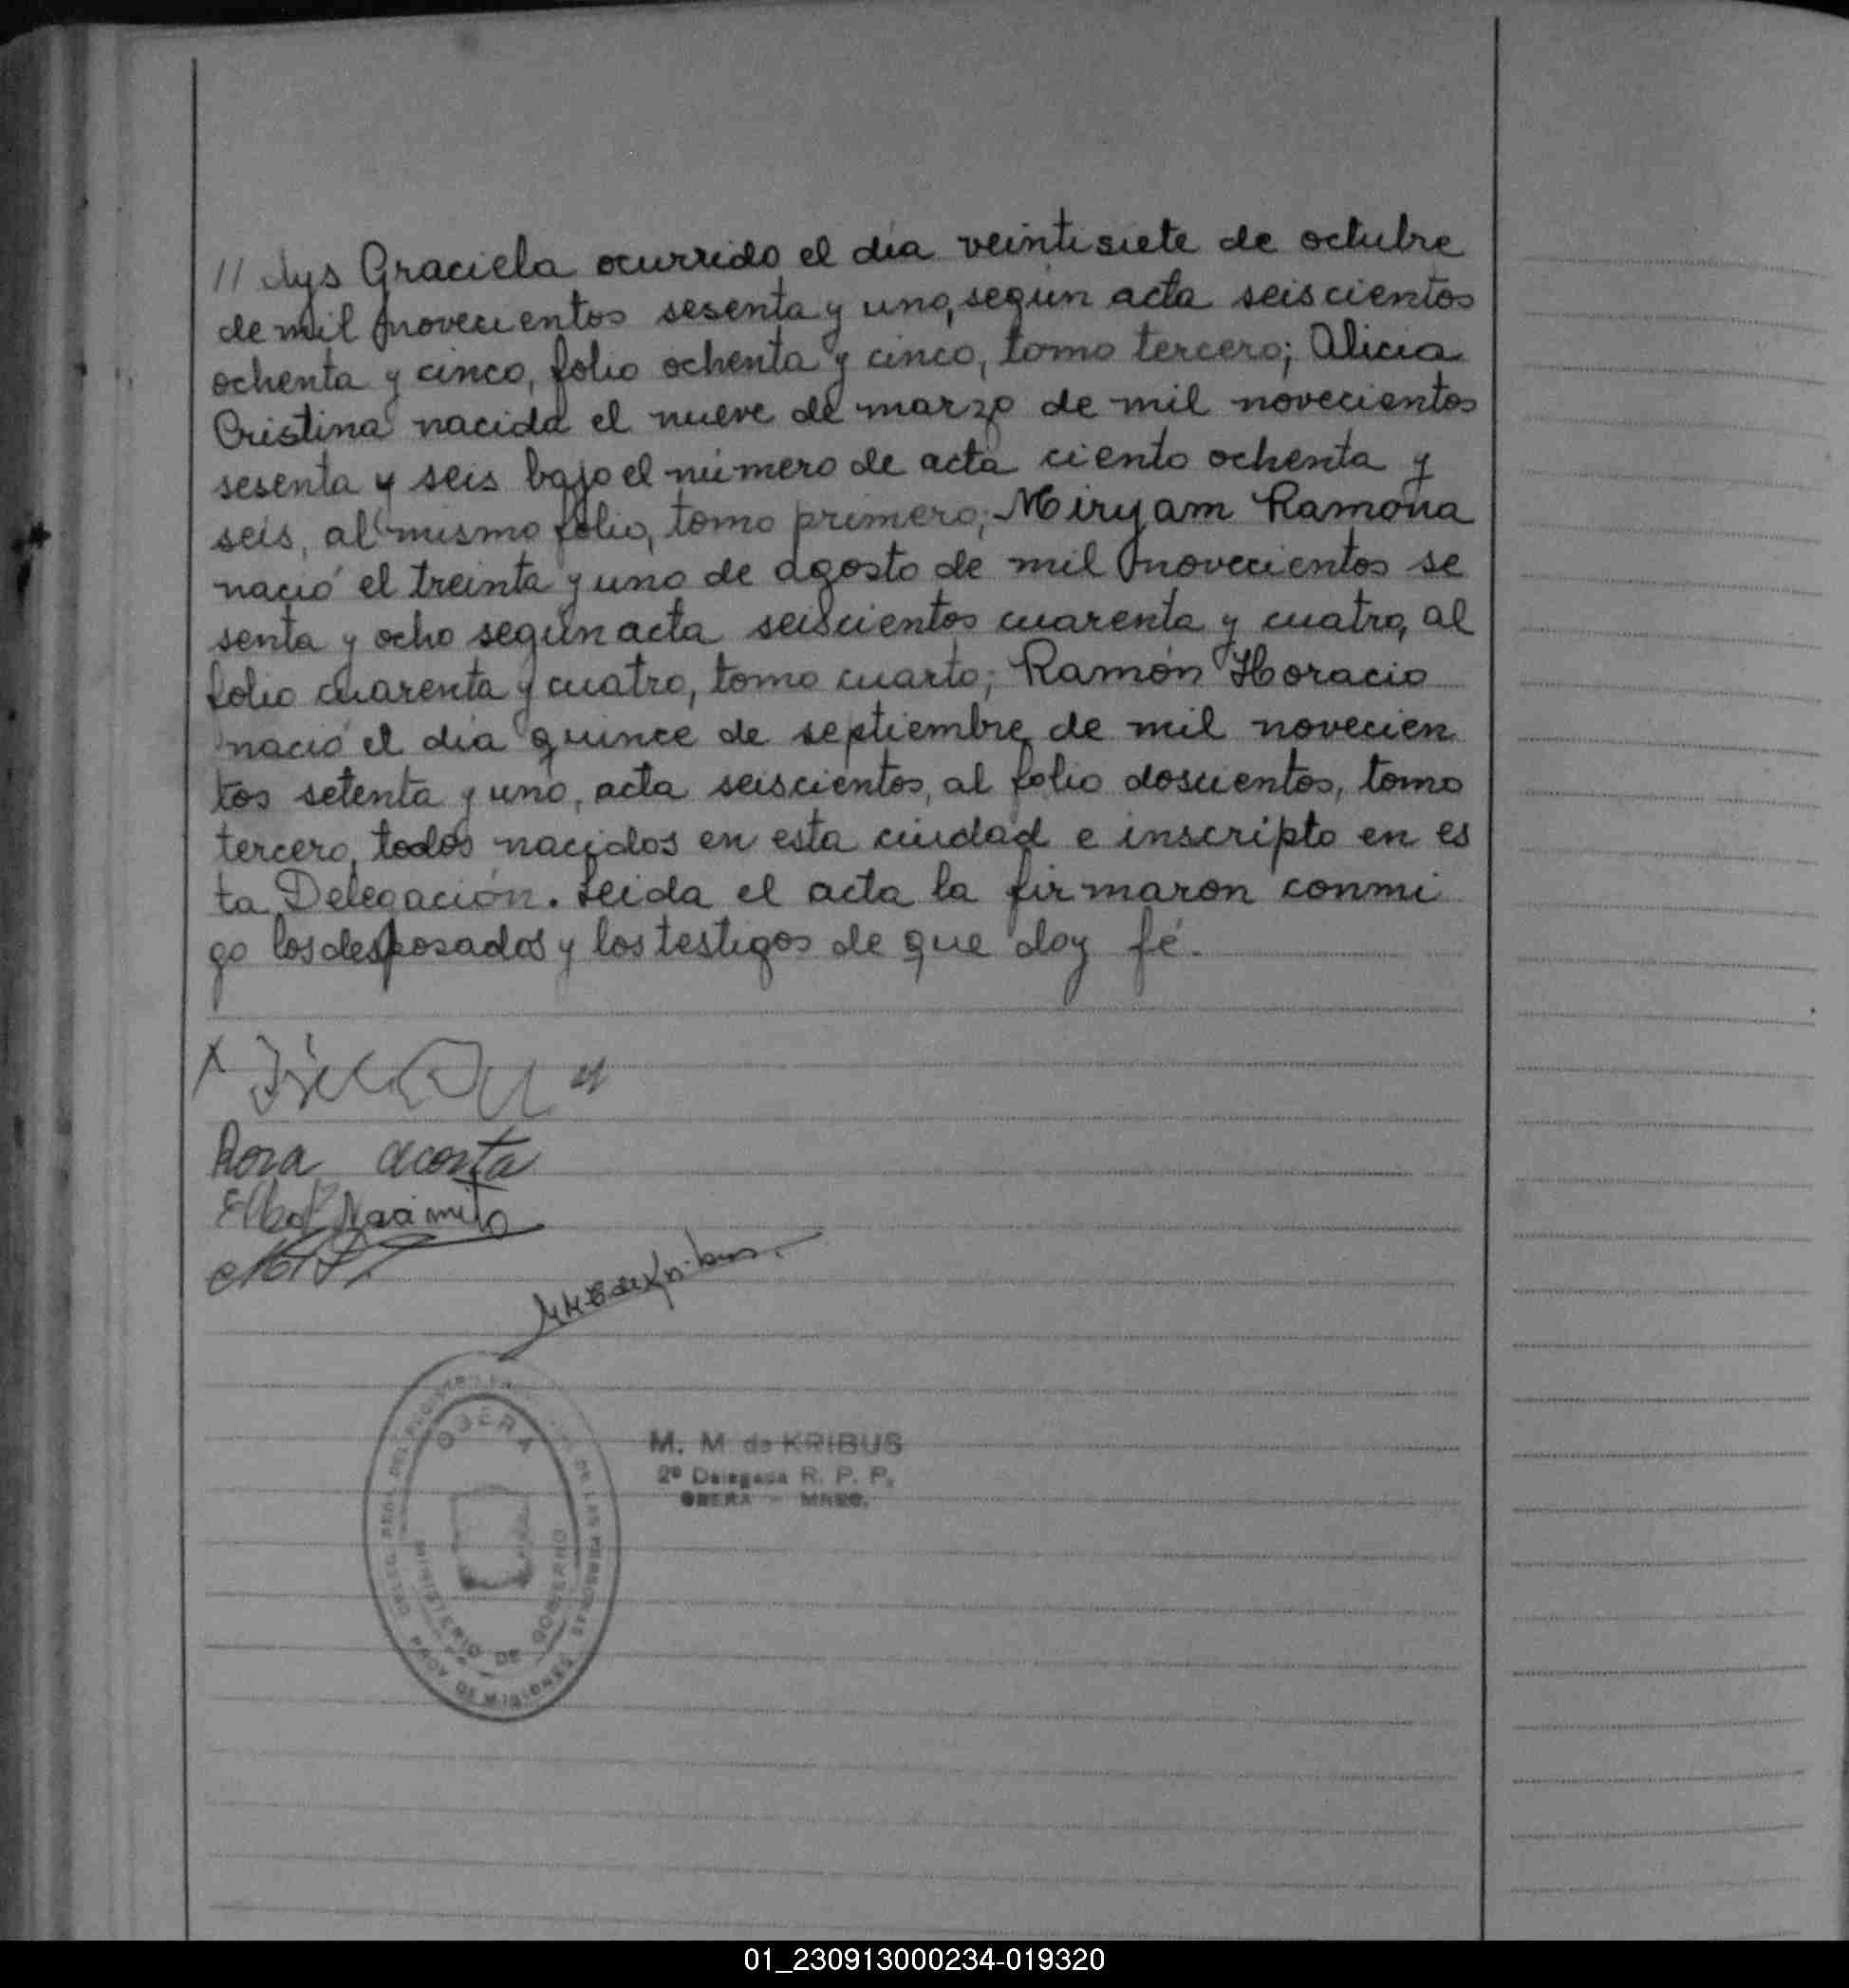 // dys Graciela ocurrido el día veintisiete de octubre
de mil novecientos sesenta y uno, según acta seiscientos
ochenta y cinco, folio ochenta y cinco, tomo tercero; Alicia
Cristina nacida el nueve de marzo de mil novecientos
sesenta y seis bajo el número de acta ciento ochenta y
seis, al mismo folio, tomo primero; Miryam Ramona
nació el treinta y uno de agosto de mil novecientos se
senta y ocho según acta seiscientos cuarenta y cuatro, al
folio cuarenta y cuatro, tomo cuarto; Ramón Horacio
nació el día quince de septiembre de mil novecien
tos setenta y uno, acta seiscientos, al folio doscientos, tomo
tercero, todos nacidos en esta ciudad e inscripto en es
ta Delegación. Leida el acta la firmaron conmi
go los desposados y los testigos de que doy fé.
X
Rosa acosta
OBERA
MINISTERIO DE GOBIERNO
DE LAS PERSONAS
M. M de KRIBUS
2º Delegada R. P. P.
OBERA - MNES.
01_230913000234-019320